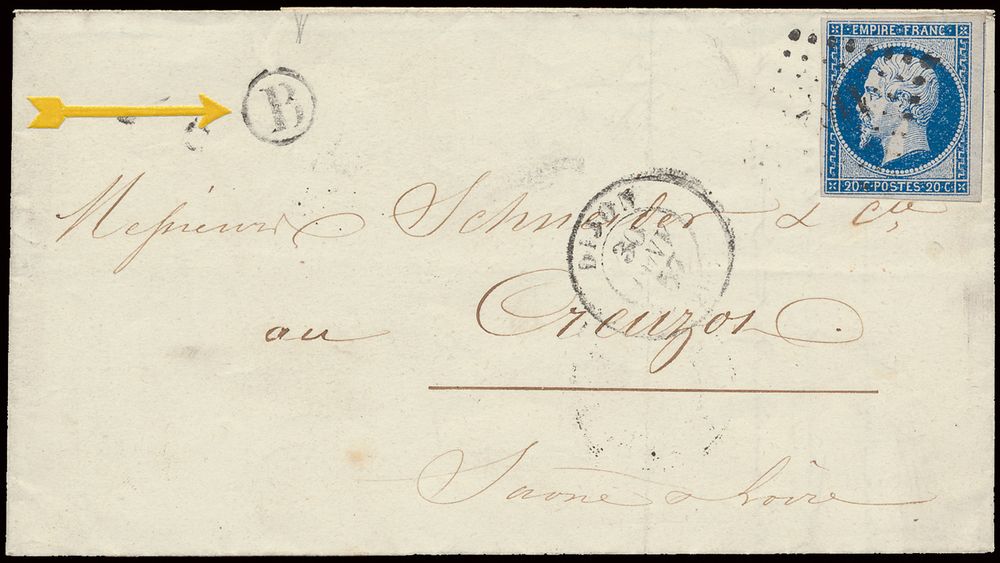 EMPIRE FRANC
B
20 C POSTES 20 C
DIJON
20
JANV
57
Messieurs Schneider & Cie
au Creuzot
Saone & Loire